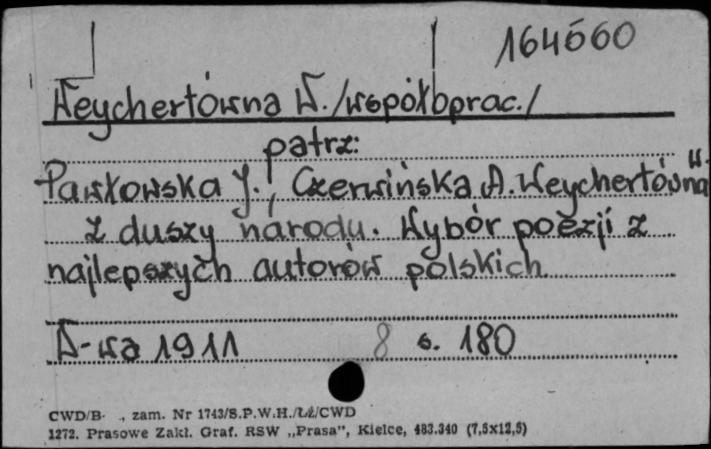 164660
Weychertówna W. /współoprac./
patrz:
Pawłowska J., Czerwińska A. Weychertówna W.
Z duszy narodu. Wybór poezji z
najlepszych autorów polskich
W-wa 1911 8 s. 180
CWD/B- ., zam. Nr 1743/S.P.W.H./Łź/CWD
1272. Prasowe Zakł. Graf. RSW „Prasa”, Kielce, 483.340 (7,5x12,5)